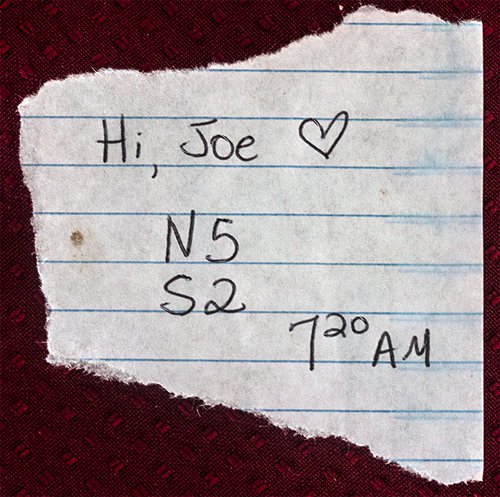 Hi, Joe ♡
N5
S2
7²⁰ AM